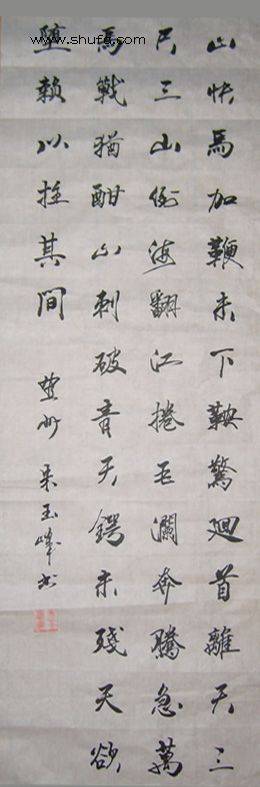 www.shufa.com
山快馬加鞭未下鞍驚迴首離天三
尺三山倒海翻江捲巨瀾奔騰急萬
馬戰猶酣山刺破青天鍔未殘天欲
墮賴以拄其間 州朱玉峰书